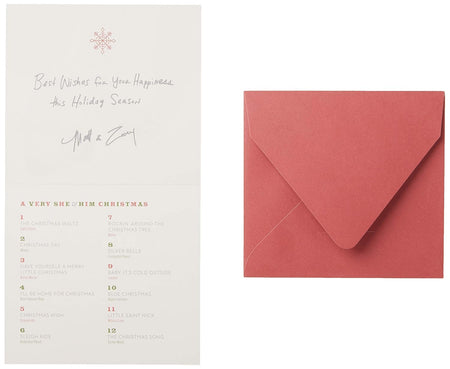 Best Wishes for Your Happiness
this Holiday Season
A VERY SHE & HIM CHRISTMAS
1
THE CHRISTMAS WALTZ
2
CHRISTMAS DAY
3
HAVE YOURSELF A MERRY
LITTLE CHRISTMAS
4
I'LL BE HOME FOR CHRISTMAS
5
CHRISTMAS WISH
6
SLEIGH RIDE
7
ROCKIN' AROUND THE
CHRISTMAS TREE
8
SILVER BELLS
9
BABY, IT'S COLD OUTSIDE
10
BLUE CHRISTMAS
11
LITTLE SAINT NICK
12
THE CHRISTMAS SONG